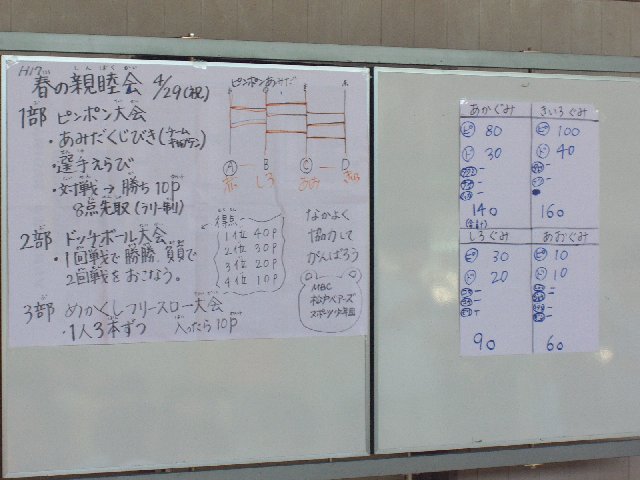 H17
しんぼくかい
春の親睦会 4/29(祝)
1部 ピンポン大会
・あみだくじびき(チームキャプテン)
・選手えらび
・対戦→勝ち10p
8点先取(ラリー制)
2部 ドッヂボール大会
・1回戦で勝勝、負負で
2回戦をおこなう。
3部 めかくしフリースロー大会
・1人3本ずつ 入ったら10p
ピンポンあみだ
A B C D
しろ
得点
1位 40p
2位 30p
3位 20p
4位 10p
なかよく
協力して
がんばろう
MBC
松戸ベアーズ
スポーツ少年団
あかぐみ
ピ 80
ド 30
140
(合計)
きいろぐみ
ピ 100
ド 40
160
しろぐみ
ピ 30
ド 20
90
あおぐみ
ピ 10
ド 10
60